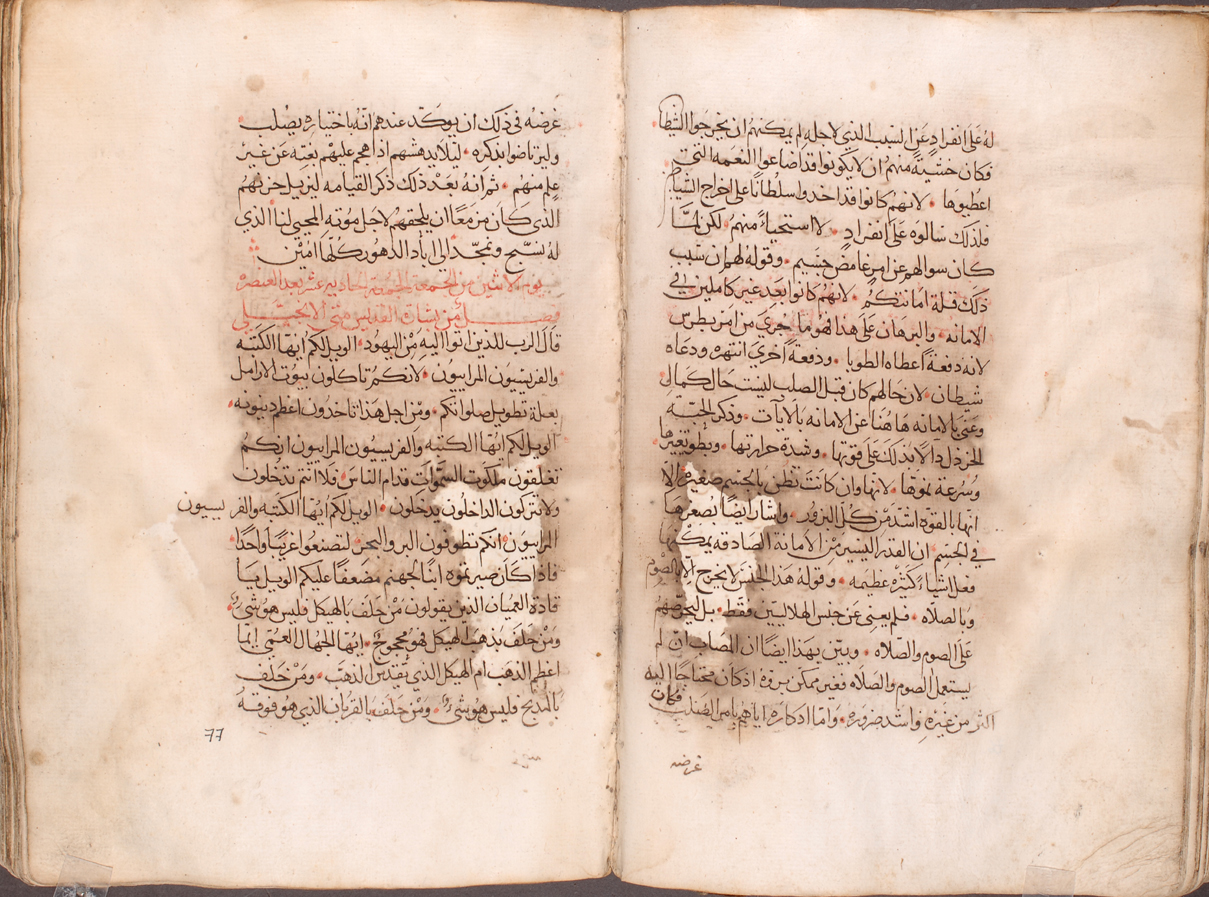 له على انفرادٍ عن السبب الذي لاجله لم يمكنهم ان يخرجوا الشيطان
فكان خشيةً منهم ان لا يكونوا قد اضاعوا النعمه التي
اعطيوها • لانهم كانوا قد اخدوا سلطانًا على اخراج الشياطين
فلذلك سالوه على انفرادٍ • لا استحياءً منهم لكن لمّا
كان سوالهم عن امر غامض جسيم • وقوله لهم ان سبب
ذلك قلة امانتكم • لانهم كانوا بعد غير كاملين في
الامانه • والبرهان على هذا فهو ما جرى من امر بطرس
لانه دفعةً اعطاه الطوبا • ودفعةً اخرى انتهره ودعاه
شيطان • لان حالهم كان قبل الصلب ليست حال كمال
وعنى بالامانه هاهنا عن الامانه بالايات • وذكر لحبة
الخردل دالاً بذلك على قوتها • وشدة حرارتها •
وسُرعة نموها • لانها وان كانت تظن بالجسم صغيره الا
انها بالقوه اشد من كل البزور • واشار ايضًا بصغرها
في الجسم ان القدر اليسير من الامانة الصادقه يمكنها
فعل اشياءً كثيره عظيمه • وقوله هذا الجنس لا يخرج الا بالصوم
وبالصلاه • فلم يعني عن جنس الهلاليين فقط • بل يحرضهم
على الصوم والصلاه • وبيّن بهذا ايضًا ان المصاب ان لم
يستعمل الصوم والصلاه فغير ممكن بروه اذ كان محتاجًا اليه
اكثر من غيره واشد ضروره • واما اذكاره اياهم بامر الصلب فكان
غرضه
غرضه في ذلك ان يوكد عندهم انه باختياره يصلب
وليرتاضوا بذكره • ليلا يدهشهم اذا هجم عليهم بغته عن غير
علم منهم • ثم انه بعد ذلك ذكر القيامه ليزيل حزنهم
الذي كان مزمعًا ان يلحقهم لاجل موته المحيي لنا الذي
له نسبّح ونمجّد الى اباد الدهور كلها امين
يوم الاثنين من الجمعة الحاديه عشر بعد العنصره
فصل من بشارة القديس متى الانجيلي
قال الرب للذين اتوا اليه من اليهود • الويل لكم ايها الكتبه
والفريسيون المراييون • لانكم تاكلون بيوت الارامل
بعلة تطويل صلواتكم • ومن اجل هذا تاخدون اعظم دينونه
الويل لكم ايها الكتبه والفريسيون المراييون انكم
تغلقون ملكوت السموات قدام الناس • فلا انتم تدخلون
ولا تتركون الداخلون يدخلون • الويل لكم ايها الكتبه والفريسيون
المراييون • انكم تطوفون البر والبحر لتصنعوا غريبًا واحدًا
فاذا كان صيرتموه ابنًا لجهنم مضعفًا عليكم الويل يا
قادة العميان الذين يقولون من حلف بالهيكل فليس هو شيء
ومن حلف بذهب الهيكل فهو محجوج • ايها الجهال العمى ايما
اعظم الذهب ام الهيكل الذي يقدس الذهب • ومن حلف
بالمذبح فليس هو شيء • ومن حلف بالقربان الذي هو فوقه
77